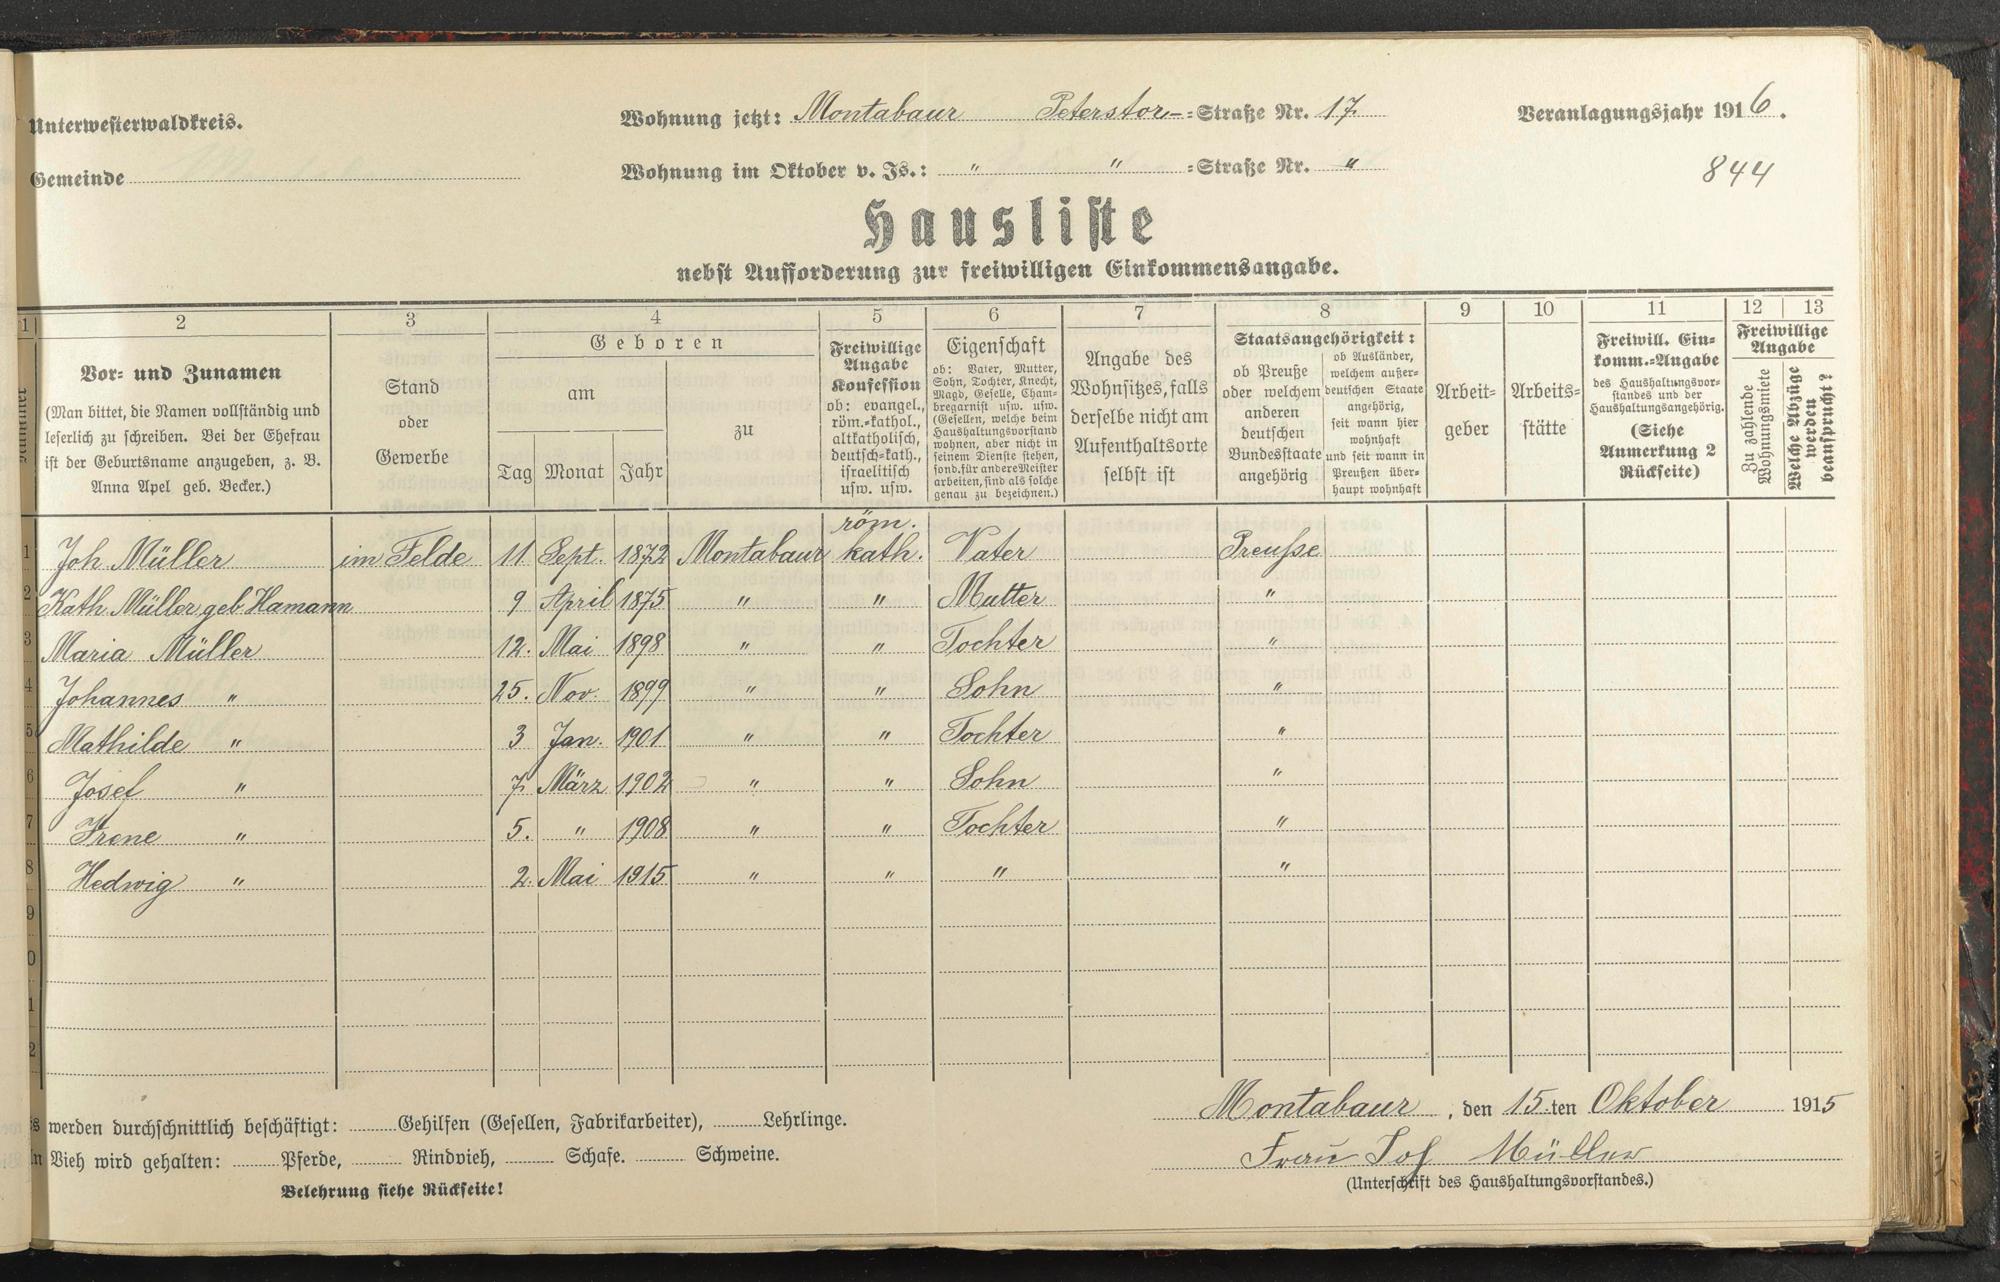 Unterwesterwaldkreis.
Wohnung jetzt: Montabaur Peterstor- =Straße Nr. 17.
Veranlagungsjahr 1916.
Gemeinde
Wohnung im Oktober v. Js.: " " =Straße Nr. "
844
Hausliste
nebst Aufforderung zur freiwilligen Einkommensangabe.
1 2 3 4 5 6 7 8 9 10 11 12 13
Nummer
Vor- und Zunamen
(Man bittet, die Namen vollständig und
leserlich zu schreiben. Bei der Ehefrau
ist der Geburtsname anzugeben, z. B.
Anna Apel geb. Becker.)
Stand
oder
Gewerbe
Geboren
am
Tag Monat Jahr
zu
Freiwillige
Angabe
Konfession
ob: evangel.,
röm.-kathol.,
altkatholisch,
deutsch-kath.,
israelitisch
usw. usw.
Eigenschaft
ob: Vater, Mutter,
Sohn, Tochter, Knecht,
Magd, Geselle, Cham-
bregarnist usw. usw.
(Gesellen, welche beim
Haushaltungsvorstand
wohnen, aber nicht in
seinem Dienste stehen,
sond. für andere Meister
arbeiten, sind als solche
genau zu bezeichnen.)
Angabe des
Wohnsitzes, falls
derselbe nicht am
Aufenthaltsorte
selbst ist
Staatsangehörigkeit:
ob Preuße
oder welchem
anderen
deutschen
Bundesstaate
angehörig
ob Ausländer,
welchem außer-
deutschen Staate
angehörig,
seit wann hier
wohnhaft
und seit wann in
Preußen über-
haupt wohnhaft
Arbeit-
geber
Arbeits-
stätte
Freiwill. Ein-
komm.-Angabe
des Haushaltungsvor-
standes und der
Haushaltungsangehörig.
(Siehe
Anmerkung 2
Rückseite)
Freiwillige
Angabe
Zu zahlende
Wohnungsmiete
Welche Abzüge
werden
beansprucht?
röm.
1 Joh. Müller im Felde 11 Sept. 1872 Montabaur kath. Vater Preusse
2 Kath. Müller geb. Hamann 9 April 1875 " " Mutter "
3 Maria Müller 12. Mai 1898 " " Tochter "
4 Johannes " 25. Nov. 1899 " " Sohn "
5 Mathilde " 3 Jan. 1901 " " Tochter "
6 Josef " 7. März 1902 " " Sohn "
7 Irene " 5. " 1908 " " Tochter "
8 Hedwig " 2. Mai 1915 " " " "
9
0
1
2
Montabaur, den 15.ten Oktober 1915
s werden durchschnittlich beschäftigt: Gehilfen (Gesellen, Fabrikarbeiter), Lehrlinge.
Frau Joh Müller
n Vieh wird gehalten: Pferde, Rindvieh, Schafe. Schweine.
(Unterschrift des Haushaltungsvorstandes.)
Belehrung siehe Rückseite!